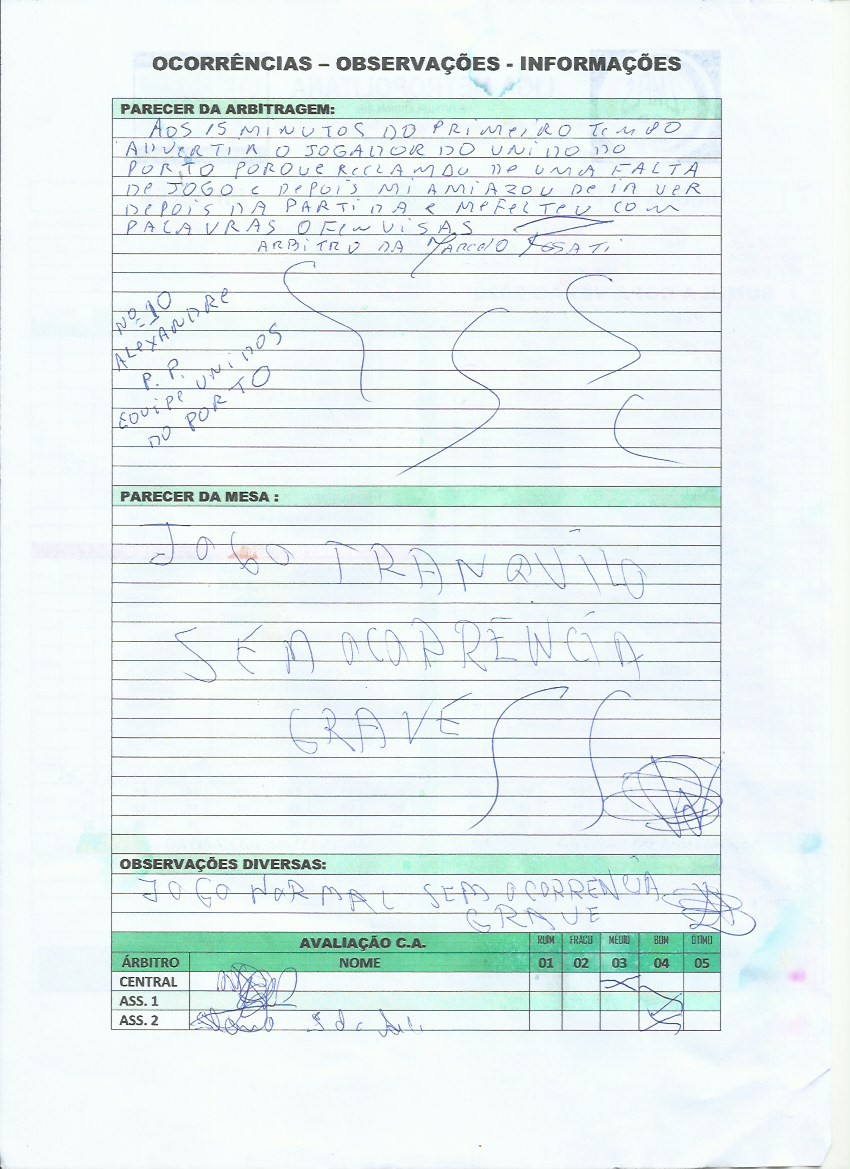 OCORRÊNCIAS – OBSERVAÇÕES - INFORMAÇÕES
PARECER DA ARBITRAGEM:
AOS 15 MINUTOS DO PRIMEIRO TEMPO
ADVERTIR O JOGADOR DO UNIDO DO
PORTO PORQUE RECLAMOU DE UMA FALTA
DE JOGO e DEPOIS MI AMIAZOU DE IA VER
DEPOIS DA PARTIDA e
COM
PALAVRAS OFENVISAS
ARBITRO DA Marcelo
Nº 10
ALEXANDRE
P. P.
EQUIPE UNIDOS
DO PORTO
PARECER DA MESA :
JOGO TRANQUÍLO
SEM OCORRÊNCIA
GRAVE
OBSERVAÇÕES DIVERSAS:
JOGO NORMAL SEM OCORRENCIA
GRAVE
AVALIAÇÃO C.A. RUIM FRACO MÉDIO BOM ÓTIMO
ÁRBITRO NOME 01 02 03 04 05
CENTRAL
ASS. 1
ASS. 2